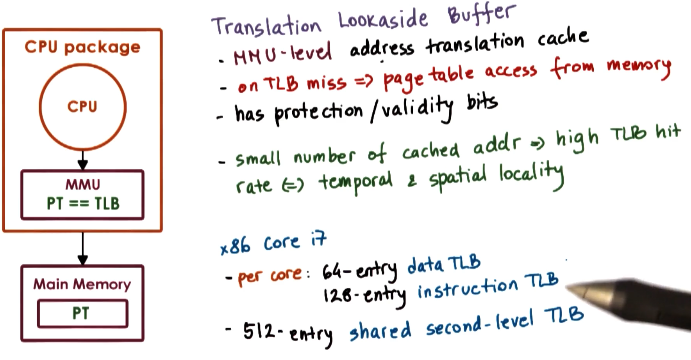 CPU package
CPU
MMU
PT == TLB
Main Memory
PT
Translation Lookaside Buffer
- MMU-level address translation cache
- on TLB miss => page table access from memory
- has protection/validity bits
- small number of cached addr => high TLB hit
rate <=> temporal & spatial locality
x86 Core i7
- per core: 64-entry data TLB
128-entry instruction TLB
- 512-entry shared second-level TLB